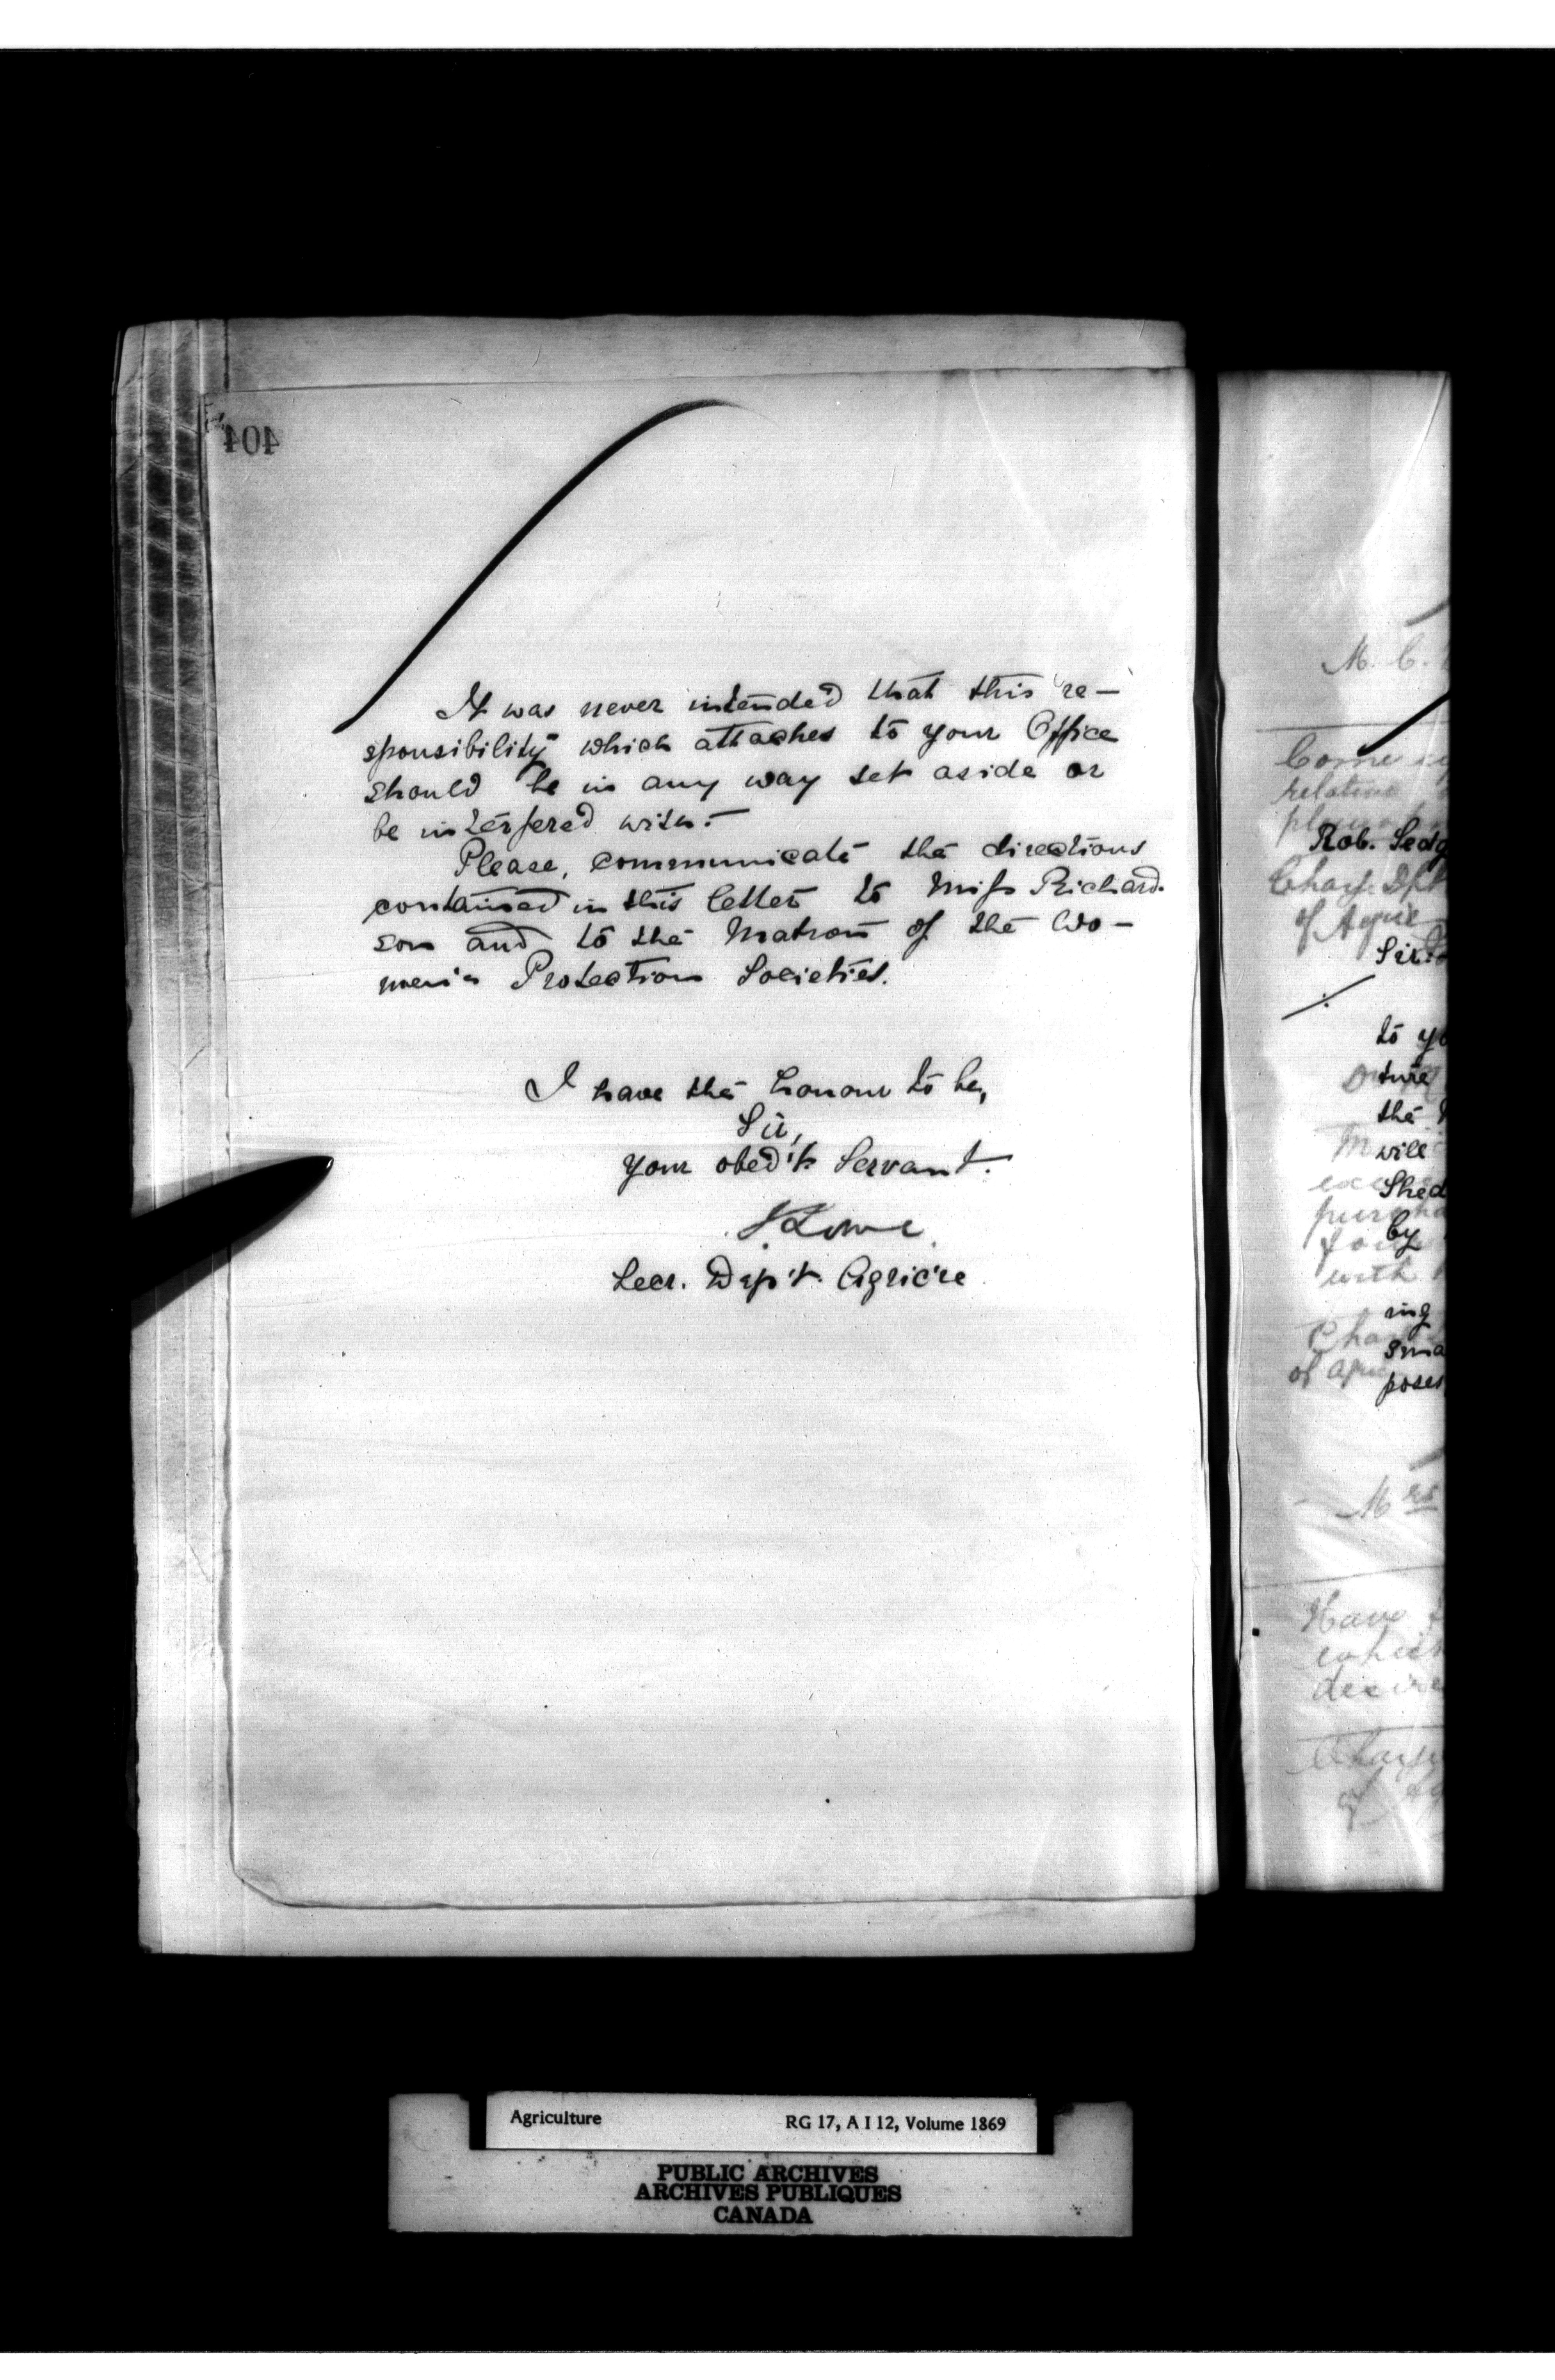 404
It was never intended that this re-
sponsibility which attaches to your Office
should be in any way set aside or
be interfered with.-
Please, communicate the directions
contained in this letter to Miss Richard-
son and to the Matron of the Wo-
men's Protection Societies.
I have the honour to be,
Sir,
your obed't Servant.
J. Lowe
Secr. Dep't. Agric're
M. C.
Come
relative
Rob. Sedg
Charge Dpt
of Agric
Sir
to yo
ture
the
will
Shed
purcha
by
with
ing
sma
of agric
poses
Mrs
Have
which
desire
Charge
of Ag
Agriculture RG 17, A I 12, Volume 1869
PUBLIC ARCHIVES
ARCHIVES PUBLIQUES
CANADA